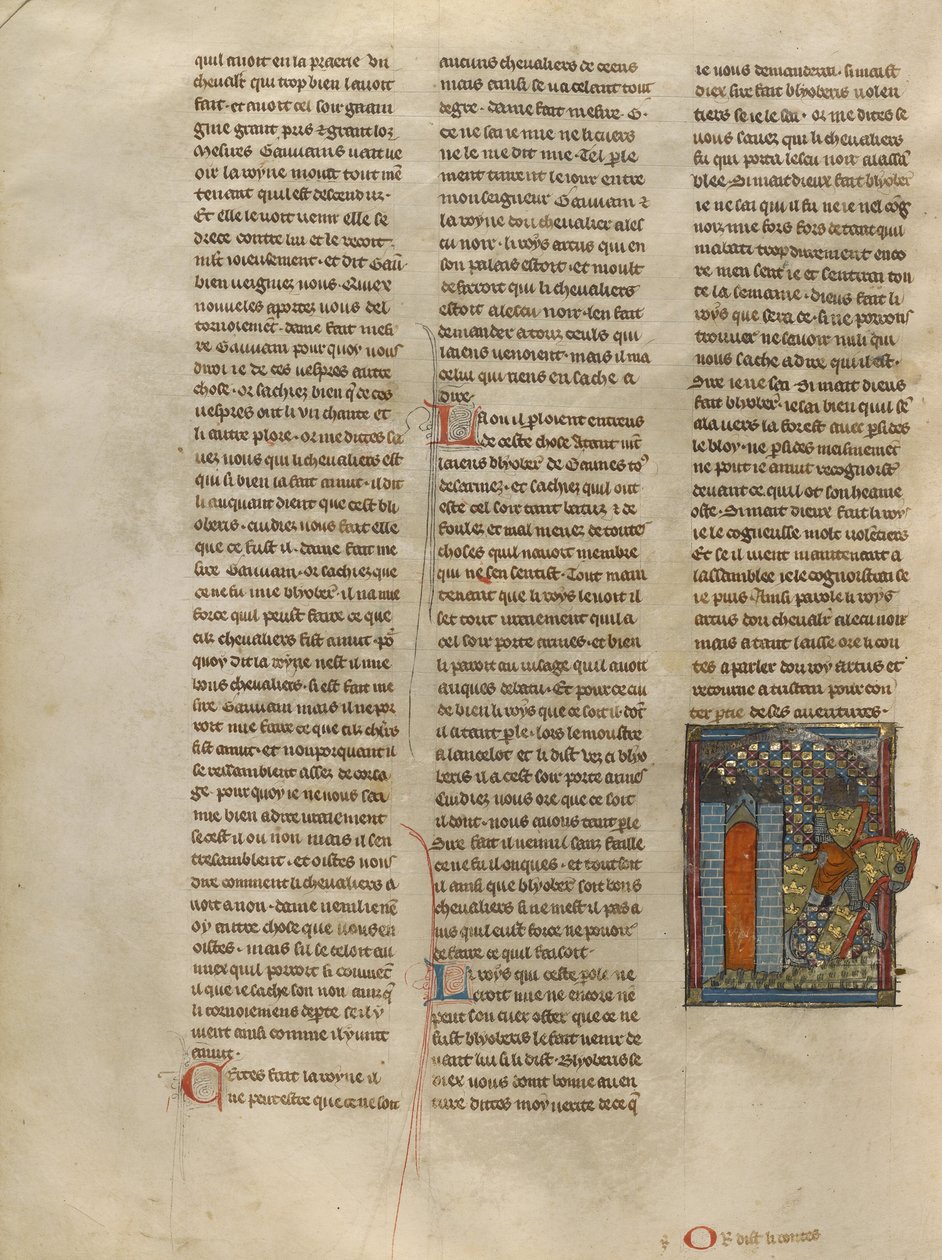 quil auoit en la praerie Vn
cheualr qui trop bien lauoit
fait · et auoit cel soir gaain
gnie grant pris & grant loz
Mesires Gauuains uait ue
oir la royne moult tout mē
tenant quil est descenduz ·
Et elle le uoit uenir elle se
drece contre lui et le recoit
ml't ioieusement · et dit Gau
bien ueigniez uous · Queux
nouueles aportez uous del
tornoiemēt · dame fait mesi
re Gauuain pour quoy uous
diroi ie de ces uespres autre
chose · or sachiez bien q̄ de ces
uespres ont li vn chante et
li autre plore · or me dictes sa
uez uous qui li cheualiers est
qui si bien la fait anuit · il dit
li auquant dient que cest bli
oberis · cuidiez uous fait elle
que ce fust il · dame fait me
sire Gauuain · or sachiez que
ce ne fu mie blyober · il na mie
force quil peust faire ce que
cilz cheualiers fist anuit · po᷑
quoy dit la royne nest il mie
bons cheualiers · si est fait me
sire Gauuain mais il ne por
roit mie faire ce que cilz chl'rs
fist anuit · et nonporquant il
se ressamblent assez de corsa
ge · pour quoy ie ne uous sai
mie bien a dire uraiement
se cest il ou non mais il sen
tresamblent · et oistes uous
dire comment li cheualiers a
uoit a non · dame uenil ie nē
oy autre chose que uous en
oistes · mais sil se celoit au
miex quil porroit si conuēt
il que ie sache son non ainz q̄
li tornoiemens depte se il y
uient ainsi comme il y uint
anuit ·
Certes fait la royne il
ne peut estre que ce ne soit
aucuns cheualiers de ceens
mais ainsi se ua celant tout
de gre · dame fait mesire · G ·
ce ne sai ie mie ne li cuers
ne le me dit mie · Tel p̱le
ment tinrent le ior entre
monseigneur Gauuain &
la royne dou cheualier a les
cu noir · li roys artus qui en
son palais estoit · et moult
desirroit qui li cheualiers
estoit a lescu noir · len fait
demander a touz ceuls qui
laiens uenoient · mais il ma
celui qui riens en sache a
dire ·
La ou il ploient entreus
de ceste chose Atant uint
laiens blyober' de Gaunes to9
desarmez · et sachiez quil ont
este cel soir tant batuz & de
foulez et mal menez de toutes
choses quil nauoit membre
qui ne sen sentist · Tout main
tenant que li roys le uoit il
set tout uraiement quil a
cel soir porte armes · et bien
li paroit au uisage quil auoit
auques debatu · Et pour ce cui
de bien li roys que ce soit il · dōt
il a tant p̱le · lors le moustre
a lancelot et li dist vez ci blyo
beris il a cest soir porte armes
Cuidiez uous ore que ce soit
il dont · nous auons tant p̱le
Sire fait il nennil sanz faille
ce ne fu il onques · et tout soit
il ainsi que blyober' soit bons
cheualiers si ne mest il pas a
uis quil eust force ne pouoir
de faire ce quil faisoit ·
Li roys qui ceste p̱ole ne
croit mie ne encore nē
peut son cuer oster que ce ne
fust blyoberis le fait uenir de
uant lui si li dist · Blyoberis se
diex uous doint bonne auen
ture dittes moy uerite de ce q̄
ie uous demanderai · si maist
diex sire fait blyoberis uolen
tiers se ie le sai · or me dites se
uous sauez qui li cheualiers
fu qui porta lescu noir a lassā
blee · Si mait dieux fait blyober'
ie ne sai qui il fu ne ie nel cog
nois mie fors fors de tant quil
mabati trop durement enco
re men sent ie et sentirai tou
te la semaine · dieus fait li
roys que sera ce · si ne porrons
trouuer ne sauoir nuli qui
nous sache a dire qui il est ·
Sire ie ne sai Si mait dieus
fait blyober' · ie sai bien quil sē
ala uers la forest auec p̱sides
le bloy · ne p̱sides meismement
ne pout ie anuit recognoistre
deuant ce quil ot son heaume
oste · Si mait dieux fait li roy
ie le cogneusse molt uolētiers
Et se il uient maintenant a
lassamblee ie le cognoistrai se
ie puis · Ainsi parole li roys
artus dou cheualr a lescu noir
mais a tant laisse ore li con
tes a parler dou roy artus et
retourne a tristan pour con
ter p̱tie de ses auentures ·
Or dist li contes